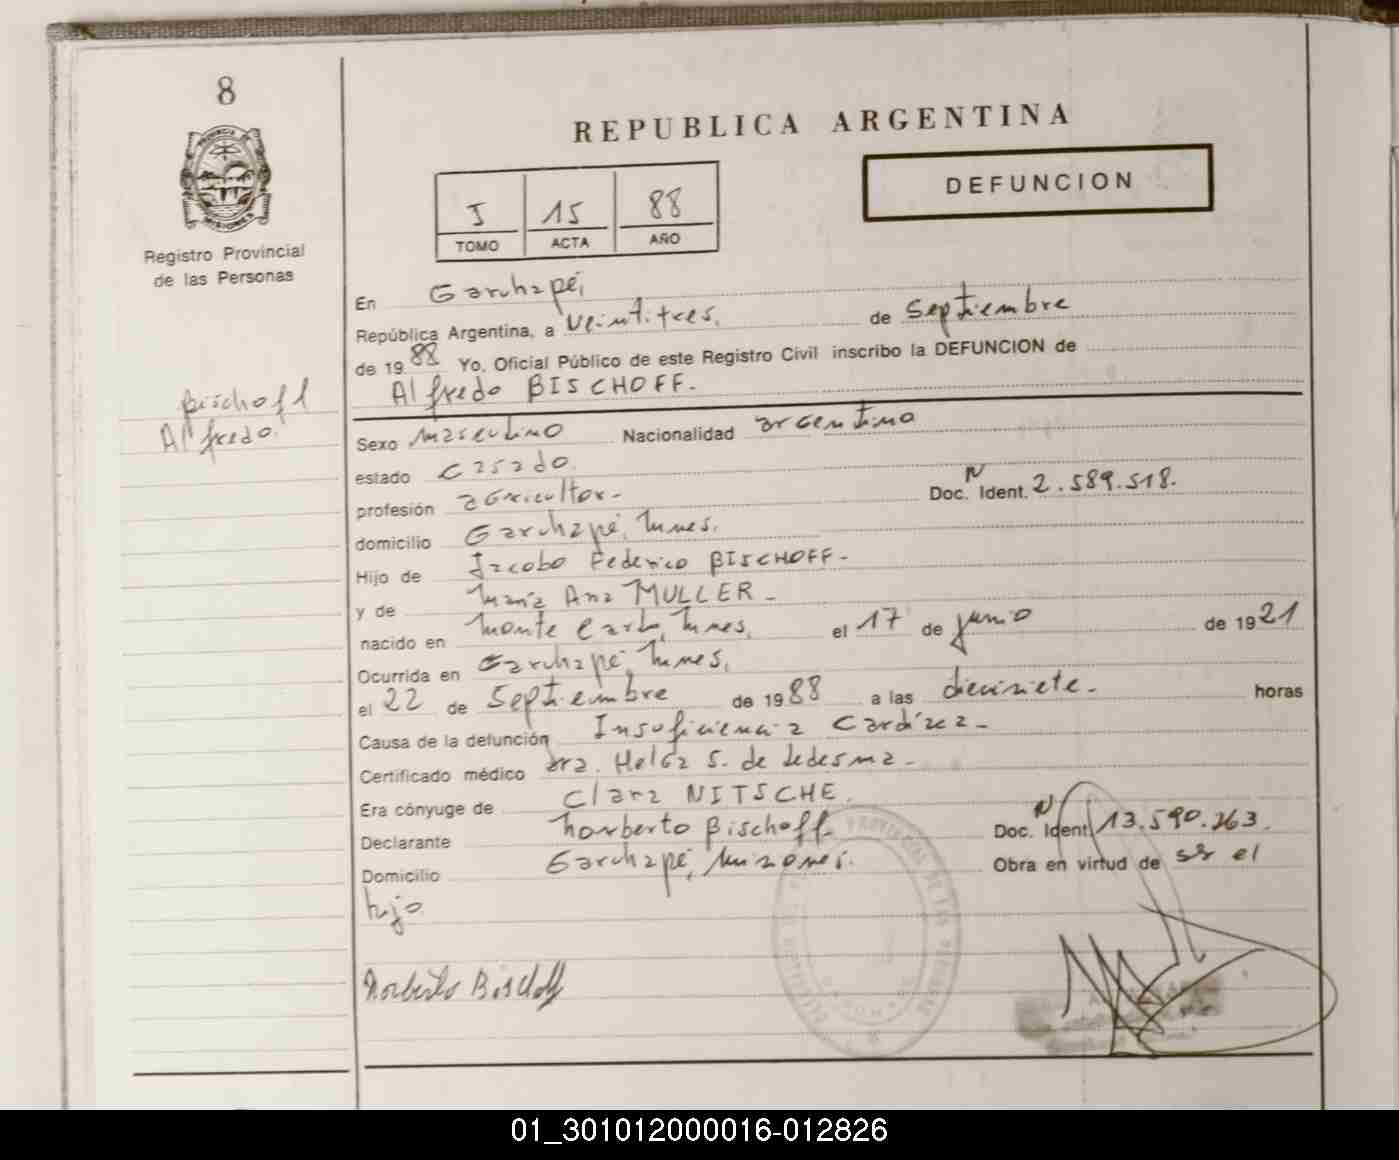 8
REPUBLICA ARGENTINA
DEFUNCION
I 15 88
TOMO ACTA AÑO
Registro Provincial
de las Personas
En Garuhapé,
República Argentina, a veintitres, de septiembre
de 1988 Yo, Oficial Público de este Registro Civil inscribo la DEFUNCION de
Alfredo BISCHOFF.
Bischoff
Alfredo.
Sexo masculino Nacionalidad argentino
estado casado.
profesión agricultor- Doc. N Ident. 2.589.518.
domicilio Garuhapé, Mnes.
Hijo de Jacobo Federico BISCHOFF-
y de María Ana MULLER-
nacido en Monte Carlo, Mnes, el 17 de junio de 1921
Ocurrida en Garuhapé, Mnes,
el 22 de septiembre de 1988 a las diecisiete- horas
Causa de la defunción Insuficiencia Cardíaca-
Certificado médico Dra. Helga S. de Ledesma-
Era cónyuge de Clara NITSCHE.
Declarante Norberto Bischoff. Doc. N Ident. 13.590.263.
Domicilio Garuhapé, Misiones. Obra en virtud de ser el
hijo.
Norberto Bischoff
01_301012000016-012826